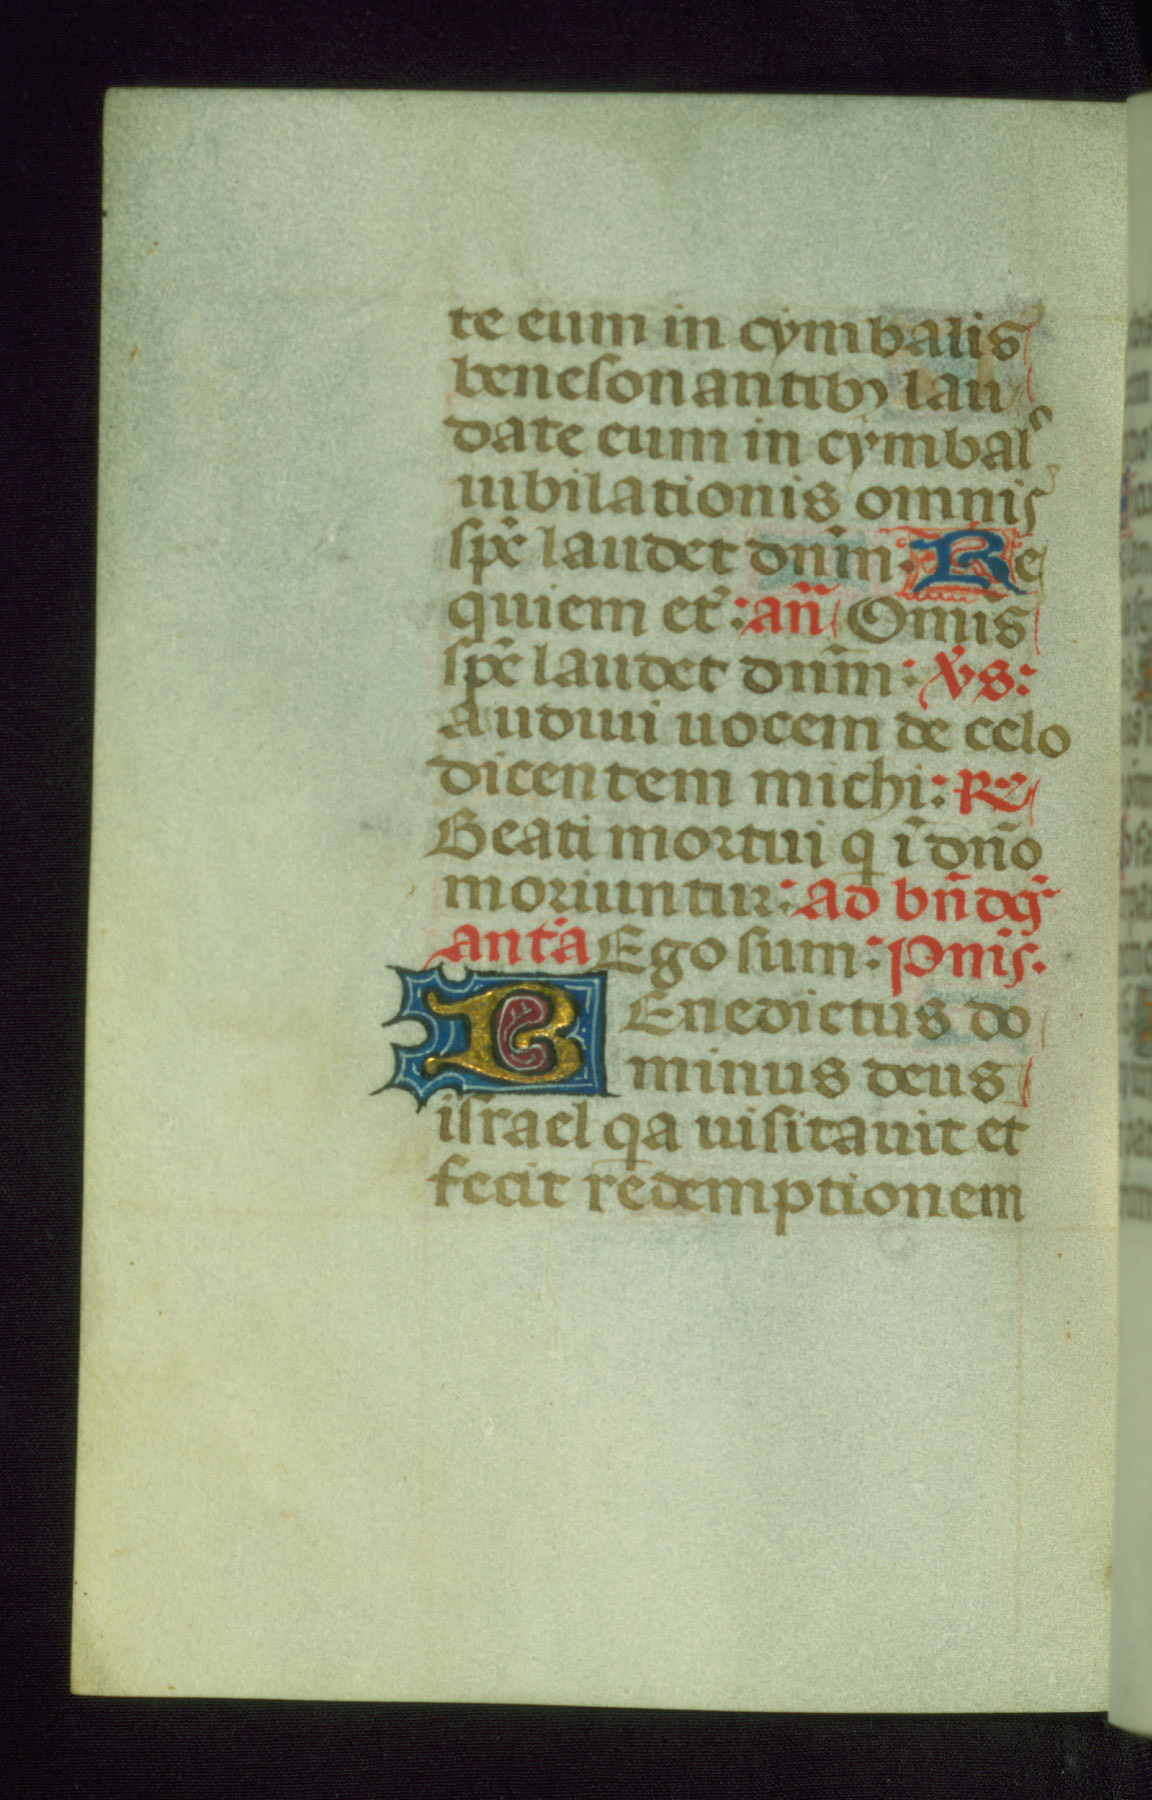 te eum in cymbalis
benesonantibꝫ lau
date eum in cymbal᷒
iubilationis omnis
sp̄c laudet dn̄m. Re
quiem et̄: an̄ Om̄is
sp̄c laudet dn̄m: v̄s:
Audiui uocem de celo
dicentem michi: R̄e
Beati mortui q ī dn̄o
moriuntur: Ad bn̄dꝯ
ant̄a Ego sum: P̄nis.
BEnedictus do
minus deus
israel qa uisitauit et
fecit redemptionem